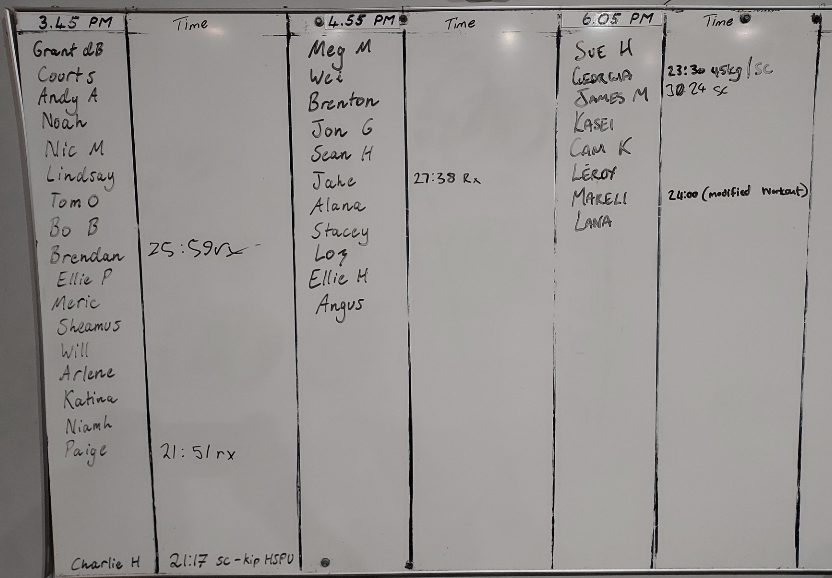 3.45 PM Time
Grant dB
Courts
Andy A
Noah
Nic M
Lindsay
Tom O
Bo B
Brendan 25:59 rx
Ellie P
Meric
Sheamus
Will
Arlene
Katina
Niamh
Paige 21:51 rx
Charlie H 21:17 sc-kip HSPU
4.55 PM Time
Meg M
Wei
Brenton
Jon G
Sean H
Jake 27:38 Rx
Alana
Stacey
Loz
Ellie H
Angus
6.05 PM Time
SUE H
GEORGIA 23:30 45kg/SC
JAMES M 30 24 SC
KASEI
CAM K
LEROY
MAKELI 24:00 (modified workout)
LANA